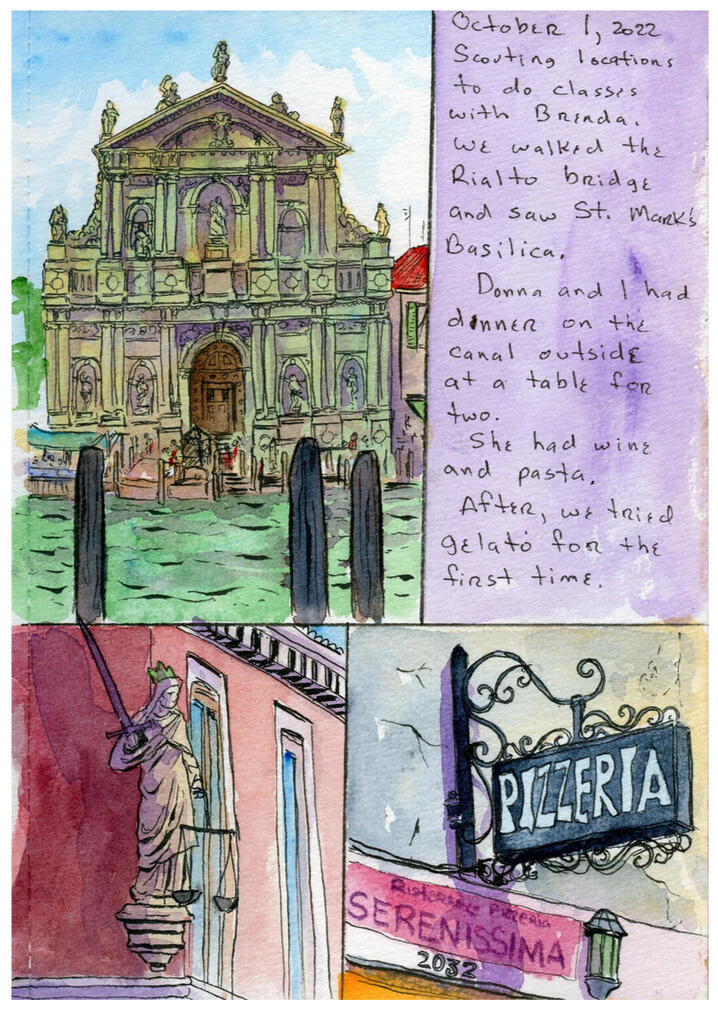 October 1, 2022
Scouting locations
to do classes
with Brenda.
We walked the
Rialto bridge
and saw St. Mark's
Basilica.
Donna and I had
dinner on the
canal outside
at a table for
two.
She had wine
and pasta.
After, we tried
gelato for the
first time.
PIZZERIA
Ristorante Pizzeria
SERENISSIMA
2032